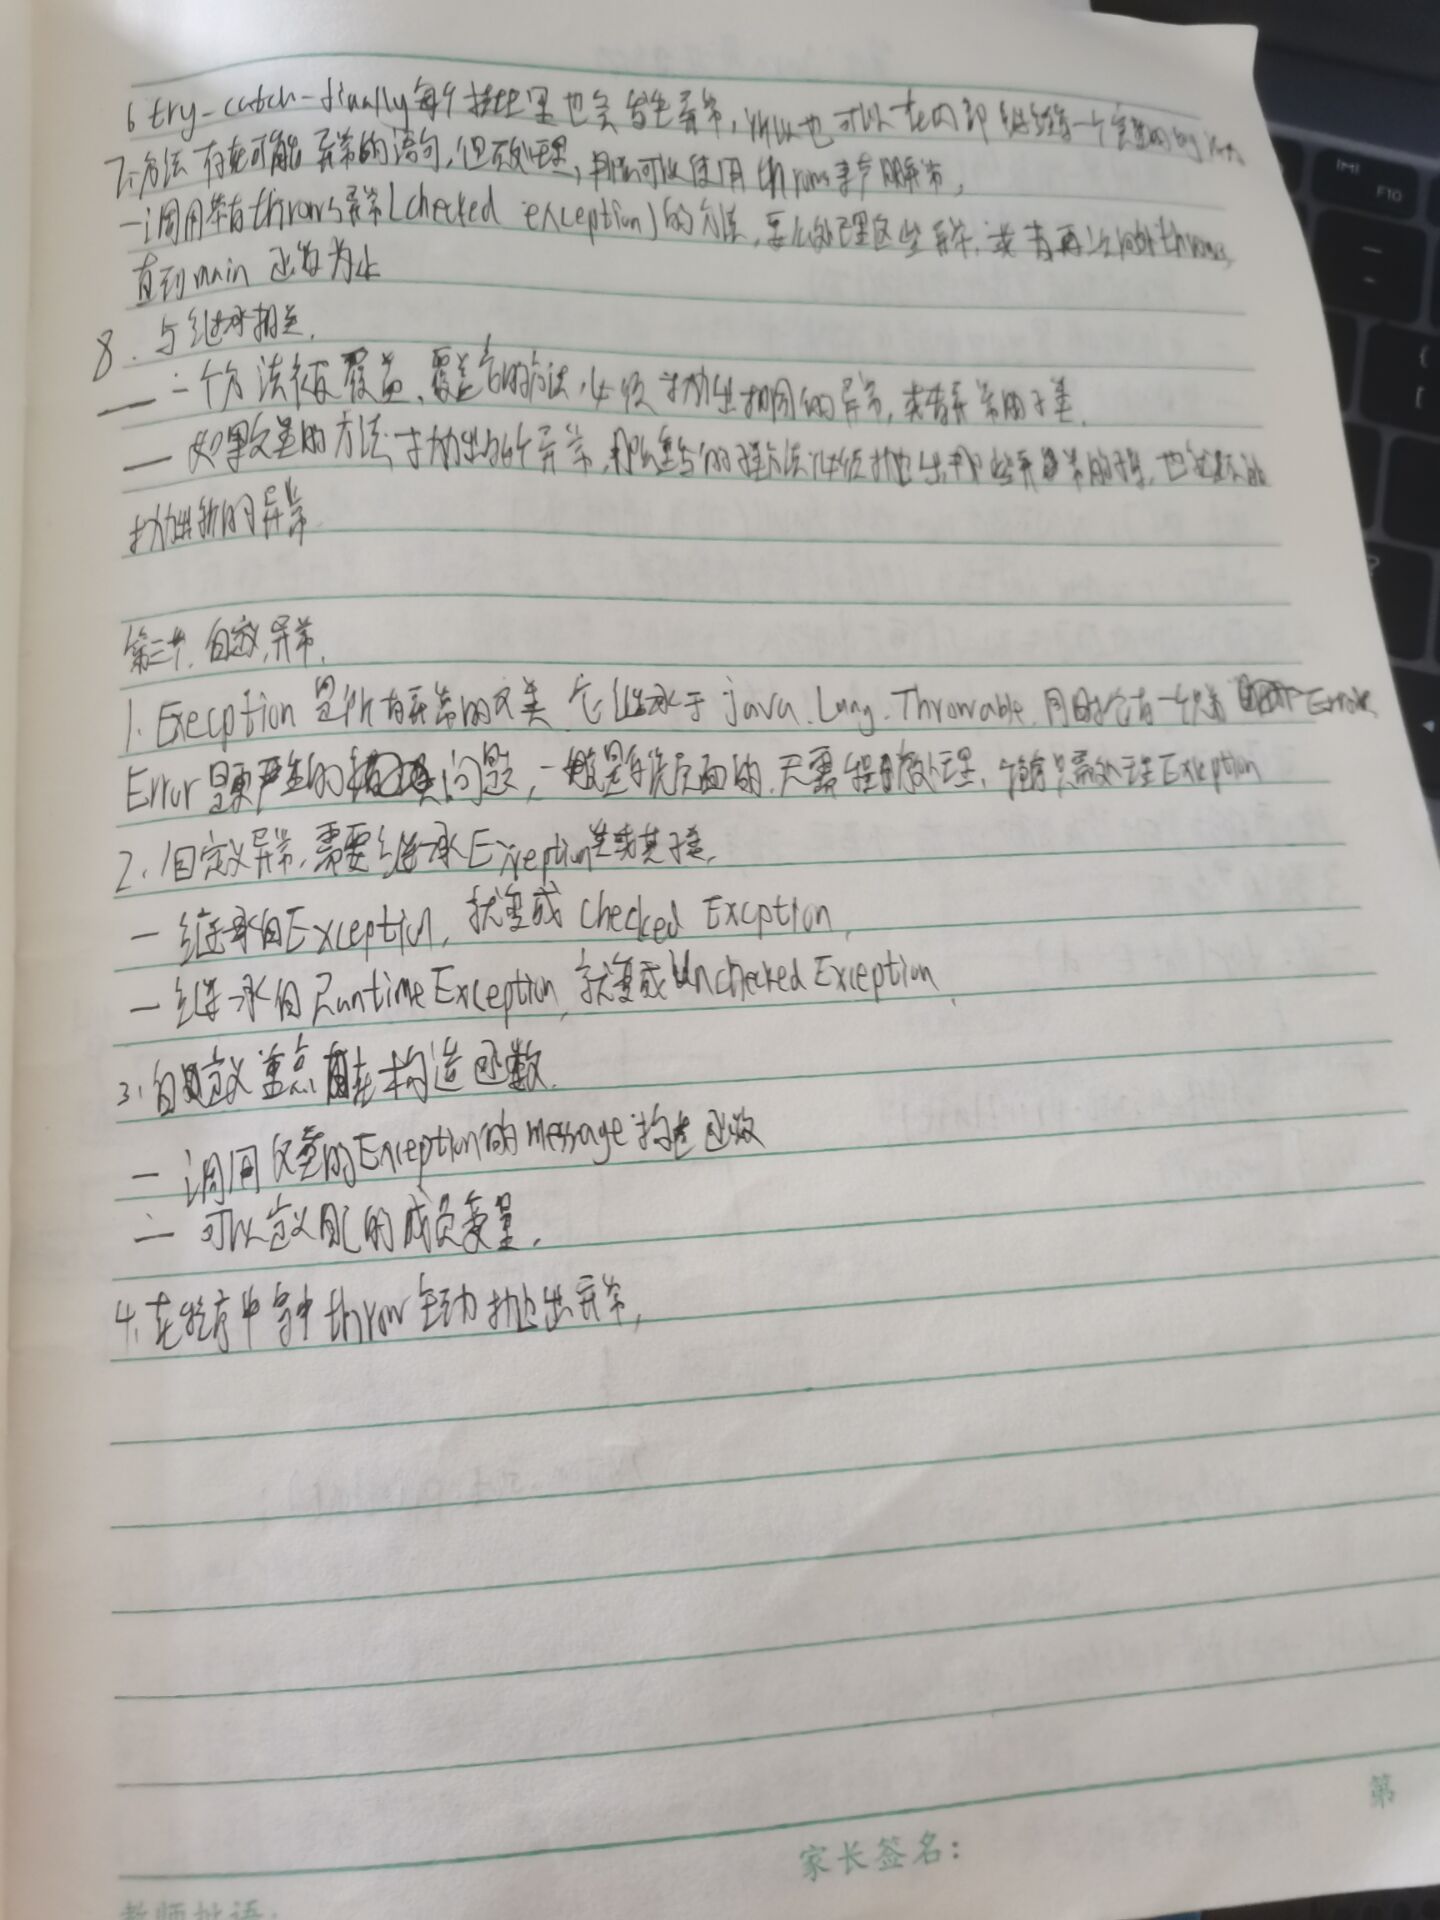 6 try-catch-finally每个模块里也会发生异常,所以也可以在内部继续写一个完整的try
7.方法存在可能异常的语句,但不处理,那么可以使用throws来声明异常,
一调用带有throws异常(checked exception)的方法,要么处理这些异常,或者再次向外throws,
直到main函数为止
8.与继承相关.
一一个方法被覆盖,覆盖它的方法,必须抛出相同的异常,或者异常的子类.
一如果父类的方法抛出多个异常,那么重写的子类方法必须抛出那些异常的子集,也就是不能
抛出新的异常
第三节.自定义异常.
1.Execption是所有异常的父类 它继承于java.Lang.Throwable.同时 有一个 Error
Error是更严重的 问题,一般是系统层面的.无需程序处理, 只需处理Exception
2.自定义异常,需要继承Exception类或其子类,
一继承自Exception,就变成checked Excption,
一继承自RuntimeException,就变成UncheckedException,
3.自定义重点在构造函数.
一调用父类的Exception的message构造函数
一可以定义自己的成员变量.
4.在程序中 throw主动抛出异常,
家长签名:
第
教师批语: